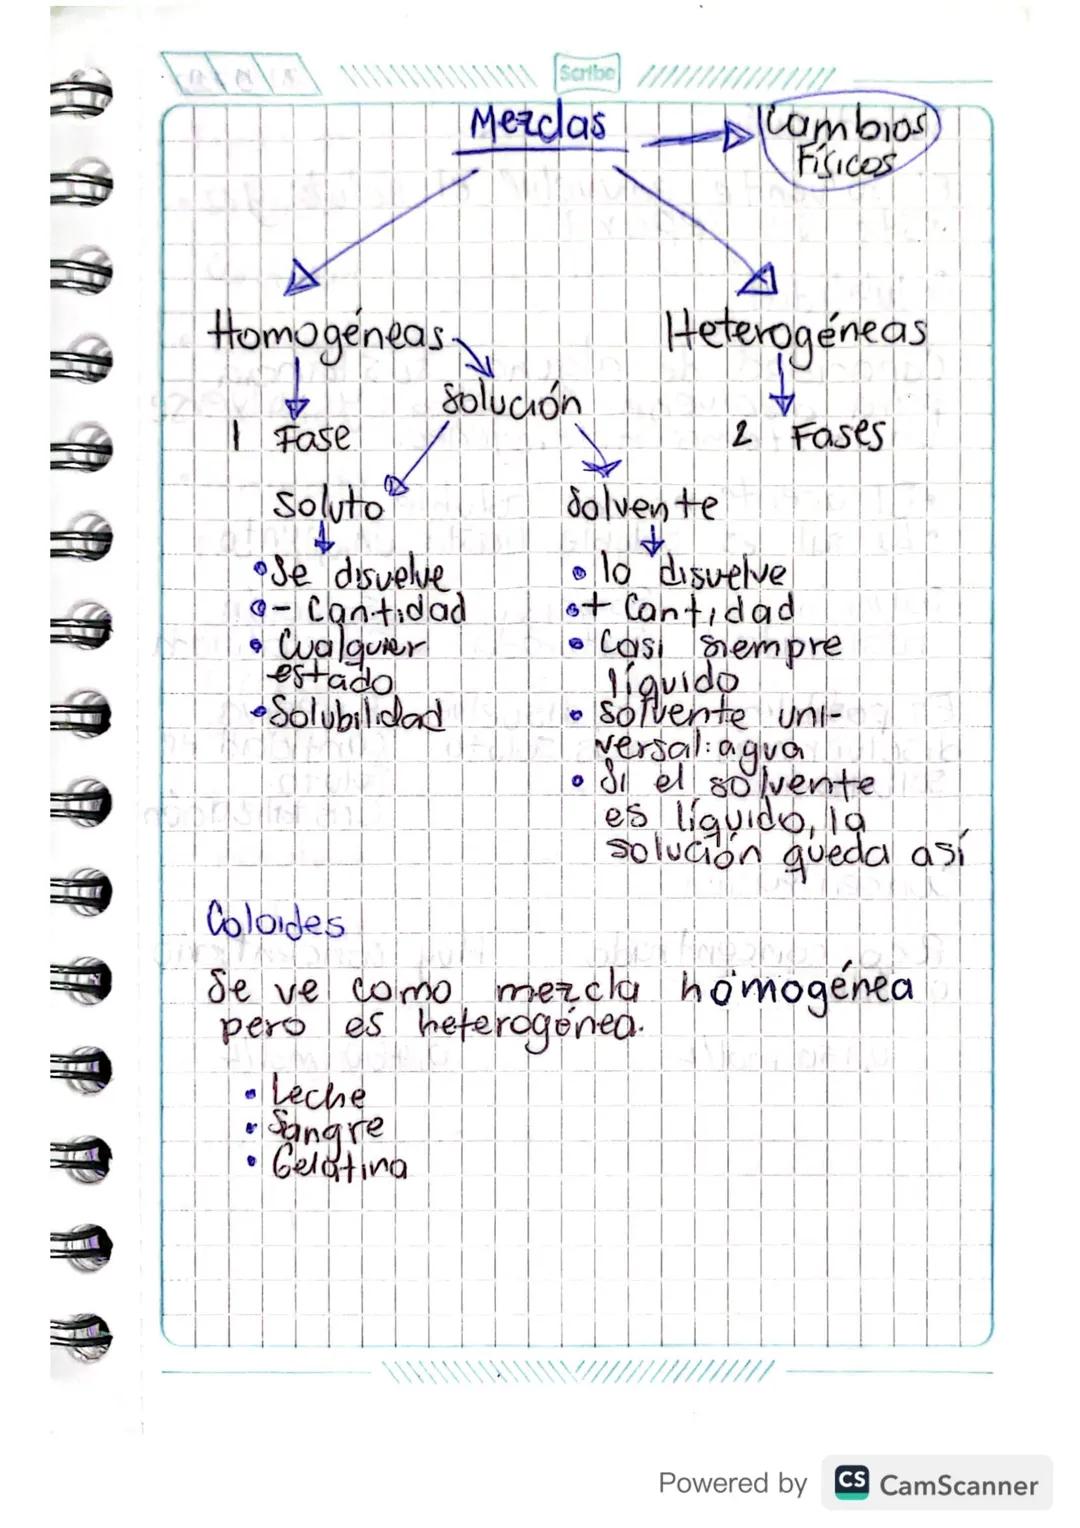 Scribe
Mezclas
Cambios
Físicos
Homogéneas
Heterogéneas
Solución
1 Fase
2 Fases
Soluto
Solvente
• Se disuelve
• lo disuelve
• - Cantidad
• + Cantidad
• Cualquier
estado
• Casi siempre
líquido
• Solubilidad
• Solvente uni-
versal: agua
• Si el solvente
es líquido, la
solución queda así
Coloides
Se ve como mezcla homogénea
pero es heterogénea.
• Leche
• Sangre
• Gelatina
Powered by CS CamScanner